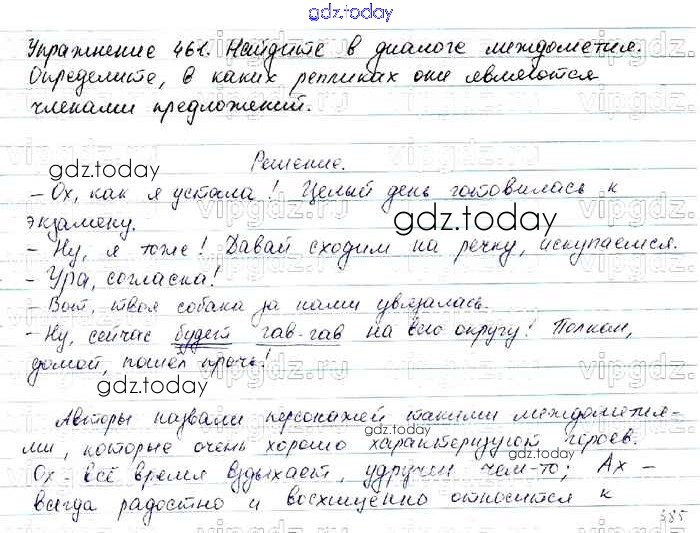 gdz.today
Упражнение 461. Найдите в диалоге междометия.
Определите, в каких репликах они являются
членами предложений.
gdz.today
Решение.
– Ох, как я устала! Целый день готовилась к
экзамену.
gdz.today
– Ну, я тоже! Давай сходим на речку, искупаемся.
– Ура, согласна!
– Вот, твоя собака за нами увязалась.
– Ну, сейчас будет гав-гав на всю округу! Полкан,
домой, пошёл прочь!
gdz.today
Авторы назвали персонажей такими междометия-
ми, которые очень хорошо характеризуют героев.
gdz.today
gdz.today
Ох – всё время вздыхает, удручен чем-то; Ах –
всегда радостно и восхищенно относится к
385
vipgdz.ru